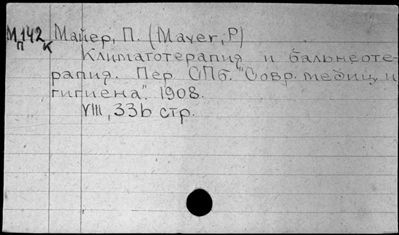 М 142 Майер, П. (Mayer, P)
П К
Климатотерапия и бальнеоте-
рапия. Пер. СПб. "Совр. медиц. и
гигиена". 1908.
VIII, 336 стр.